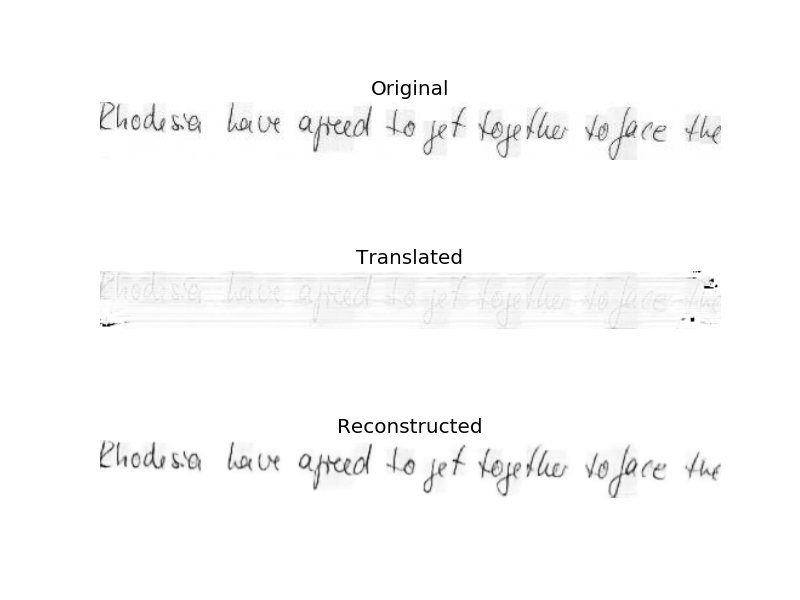 Original
Rhodesia have agreed to get together to face the
Translated
Rhodesia have agreed to get together to face the
Reconstructed
Rhodesia have agreed to get together to face the